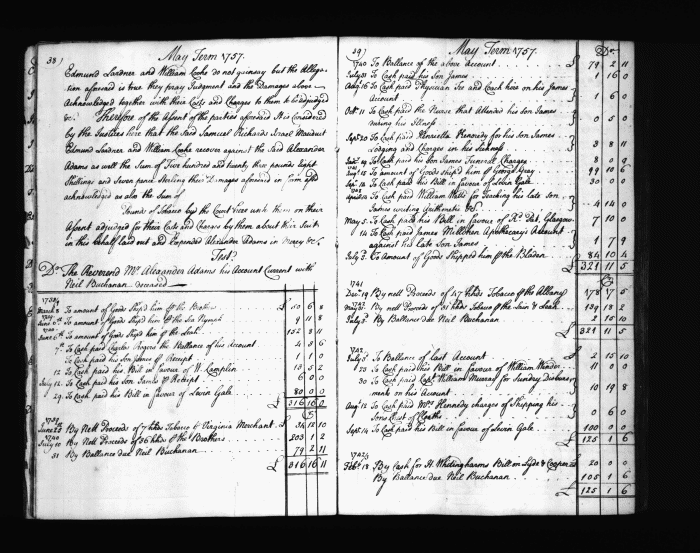 38)
May Term 1757.
Edmund Lardner and William Cooke do not gainsay but the Allega-
tion aforesaid is true they pray Judgment and the Damages above
Acknowledged together with their Costs and Charges to them to be adjudged
&c. Therefore of the Assent of the parties aforesaid It is Considered
by the Justices here that the said Samuel Richards Israel Mauduit
Edmund Lardner and William Cooke recover against the said Alexander
Adams as well the Sum of Five hundred and twenty three pounds Eight
Shillings and Seven pence Sterling their Damages aforesaid in form afsd
acknowledged as also the Sum of
Pounds of Tobacco by the Court here unto them on their
Assent adjudged for their Costs and Charges by them about their Suit
in this behalf laid out and Expended Alexander Adams in Mercy &c.
Test
Dr. The Reverend Mr. Alexander Adams his Account Current with
Neil Buchanan deceased
1738
March 8 To amount of Goods Ship'd him the Brothers 50 6 8
June To amount of Goods Ship'd him the Sea Nymph 9 11 8
June To amount of Goods Ship'd him the 152 8 11
To Cash paid Charles Rogers the Ballance of his Account 4 3 6
To Cash paid his Son James Receipt 1 1 0
12 To Cash paid his Bill in favour of W. Lamplin 13 5 2
July 12 To Cash paid his Son James Receipt 6 0 0
29 To Cash paid his Bill in favour of Levin Gale 80 0 0
£ 316 16 11
1739
June 23 By Nett Proceeds of 7 hhds Tobacco Virginia Merchant £ 34 12 10
1740
July 10 By Nett Proceeds of 36 hhds the Brothers 203 1 2
31 By Ballance due Neil Buchanan 79 2 11
£ 316 16 11
39)
May Term 1757.
Dr.
1740 To Ballance of the above Account £ 79 2 11
July 31 To Cash paid his Son James 1 16 0
Aug 16 To Cash paid Physician Fee and Coach hire on his James
Account 1 6 0
Oct 11 To Cash paid the Nurse that Attended his Son James
during his Illness 0 5 0
Sept 20 To Cash paid Henrietta Kennedy for his Son James
Lodging and Charges in his Sickness 3 8 11
To Cash paid his Son James Funerall Charges 8 0 9
To amount of Goods Ship'd him George Gray 99 10 6
Sep. 12 To Cash paid his Bill in favour of Levin Gale 30 0 0
To Cash paid William Watts for Teaching his late Son
James writing Arithmetic &c 4 14 0
May 5 To Cash paid his Bill in favour of Glasgow 7 10 0
14 To Cash paid James Millikin Apothecary's Account
against his late Son James 1 7 9
July 3 To Amount of Goods Shipped him the Bladen 84 10 4
£ 321 11 5
1741
Decr 19 By nett Proceeds of 47 hhds Tobacco the Albany £ 178 17 5
1742
By nett Proceeds of 31 hhds Tobacco the Levin & Leah 139 18 2
July 5 By Ballance due Neil Buchanan 2 15 10
£ 321 11 5
1742
July 5 To Ballance of last Account £ 2 15 10
23 To Cash paid his Bill in favour of William Winder 11 0 0
30 To Cash paid Capt William Murray for Sundry Disburse-
ments on his Account 10 19 8
Aug 12 To Cash paid Mrs Kennedy charges of Shipping his
Sons Chest of Cloaths 0 6 0
Sept 14 To Cash paid his Bill in favour of Levin Gale 100 0 0
£ 125 1 6
Febr 18 By Cash for H. Whitinghams Bill on Lyde & Cooper £ 20 0 0
By Ballance due Neil Buchanan 105 1 6
£ 125 1 6